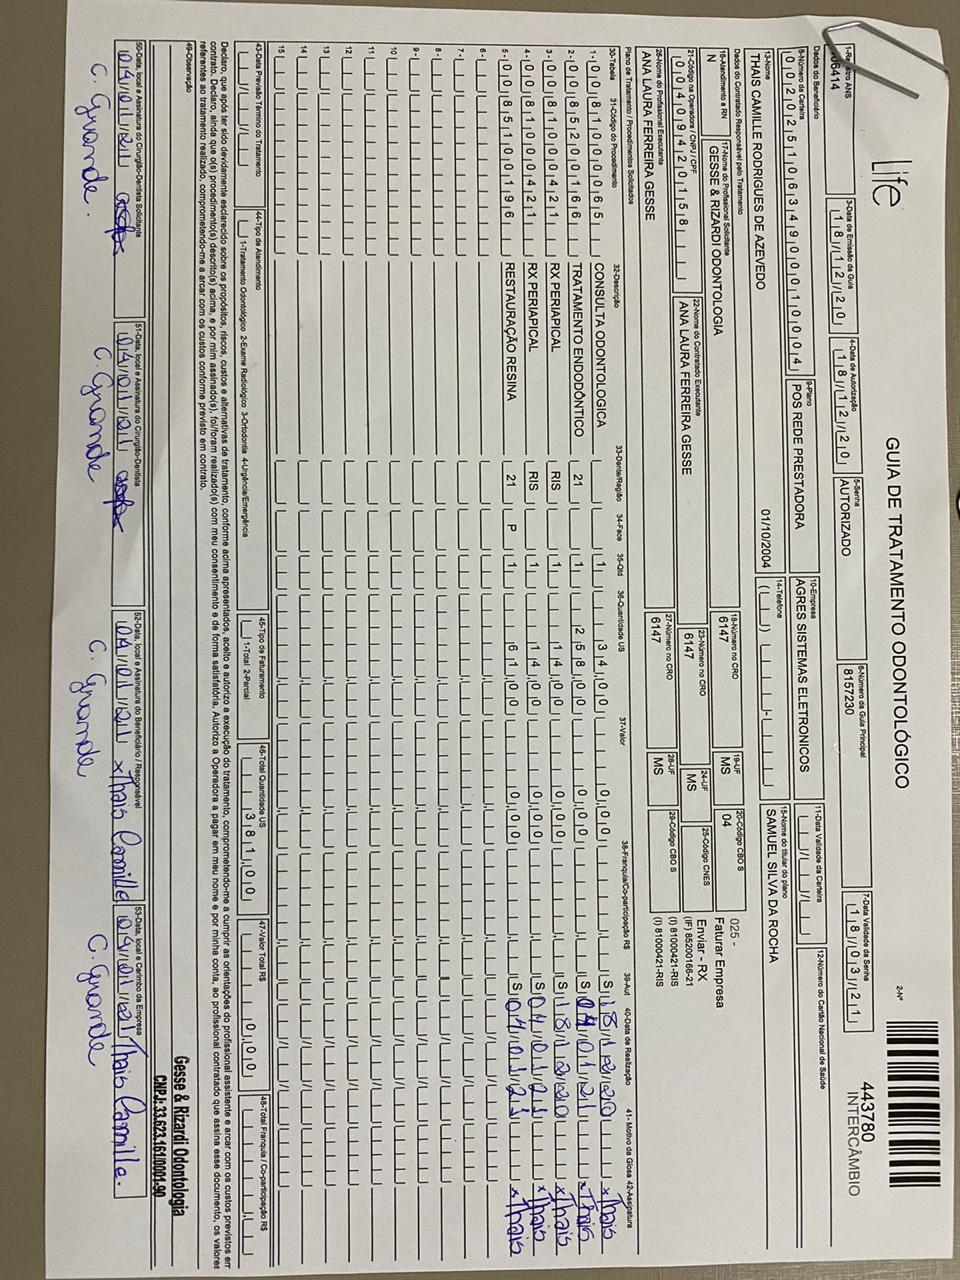 Life
GUIA DE TRATAMENTO ODONTOLÓGICO
2-Nº
443780
INTERCÂMBIO
06414
3-Data de Emissão da Guia
18/12/20
4-Data de Autorização
18/12/20
5-Senha
AUTORIZADO
6-Número da Guia Principal
8157230
7-Data Validade da Senha
18/03/21
Dados do Beneficiário
8-Número da Carteira
00202510634900010004
9-Plano
POS REDE PRESTADORA
10-Empresa
AGRES SISTEMAS ELETRONICOS
11-Data Validade da Carteira
12-Número do Cartão Nacional de Saúde
13-Nome
THAIS CAMILLE RODRIGUES DE AZEVEDO
01/10/2004
14-Telefone
15-Nome do titular do plano
SAMUEL SILVA DA ROCHA
Dados do Contratado Responsável pelo Tratamento
16-Atendimento a RN
N
17-Nome do Profissional Solicitante
GESSE & RIZARDI ODONTOLOGIA
18-Número no CRO
6147
19-UF
MS
20-Código CBO S
04
025 -
Faturar Empresa
21-Código na Operadora / CNPJ / CPF
00409420158
22-Nome do Contratado Executante
ANA LAURA FERREIRA GESSE
23-Número no CRO
6147
24-UF
MS
25-Código CNES
Enviar - RX
(IF) 85200166-21
(I) 81000421-RIS
(I) 81000421-RIS
26-Nome do Profissional Executante
ANA LAURA FERREIRA GESSE
27-Número no CRO
6147
28-UF
MS
29-Código CBO S
Plano de Tratamento / Procedimentos Solicitados
30-Tabela 31-Código do Procedimento 32-Descrição 33-Dente/Região 34-Face 35-Qtd 36-Quantidade US 37-Valor 38-Franquia/Co-participação R$ 39-Aut 40-Data de Realização 41- Motivo da Glosa 42-Assinatura
1- 00 81000065 CONSULTA ODONTOLOGICA 1 34,00 0,00 S 18/12/20 x Thais
2- 00 85200166 TRATAMENTO ENDODÔNTICO 21 1 258,00 0,00 S 04/01/21 x Thais
3- 00 81000421 RX PERIAPICAL RIS 1 14,00 0,00 S 18/12/20 x Thais
4- 00 81000421 RX PERIAPICAL RIS 1 14,00 0,00 S 04/01/21 x Thais
5- 00 85100196 RESTAURAÇÃO RESINA 21 P 1 61,00 0,00 S 04/01/21 x Thais
6-
7-
8-
9-
10
11
12
13
14
15
43-Data Previsão Término do Tratamento
44-Tipo de Atendimento
1-Tratamento Odontológico 2-Exame Radiológico 3-Ortodontia 4-Urgência/Emergência
45-Tipo de Faturamento
1-Total 2-Parcial
46-Total Quantidade US
381,00
47-Valor Total R$
0,00
48-Total Franquia / Co-participação R$
Declaro, que após ter sido devidamente esclarecido sobre os propósitos, riscos, custos e alternativas de tratamento, conforme acima apresentados, aceito e autorizo a execução do tratamento, comprometendo-me a cumprir as orientações do profissional assistente e arcar com os custos previstos em
contrato. Declaro, ainda que o(s) procedimento(s) descrito(s) acima, e por mim assinado(s), foi/foram realizado(s) com meu consentimento e de forma satisfatória. Autorizo a Operadora a pagar em meu nome e por minha conta, ao profissional contratado que assina esse documento, os valores
referentes ao tratamento realizado, comprometendo-me a arcar com os custos conforme previsto em contrato.
49-Observação
Gesse & Rizardi Odontologia
CNPJ: 33.623.161/0001-90
50-Data, local e Assinatura do Cirurgião-Dentista Solicitante
04/01/21
C. Grande.
51-Data, local e Assinatura do Cirurgião-Dentista
04/01/21
C. Grande
52-Data, local e Assinatura do Beneficiário / Responsável
04/01/21 x Thais Camille
C. Grande
53-Data, local e Carimbo da Empresa
04/01/21 Thais Camille.
C. Grande